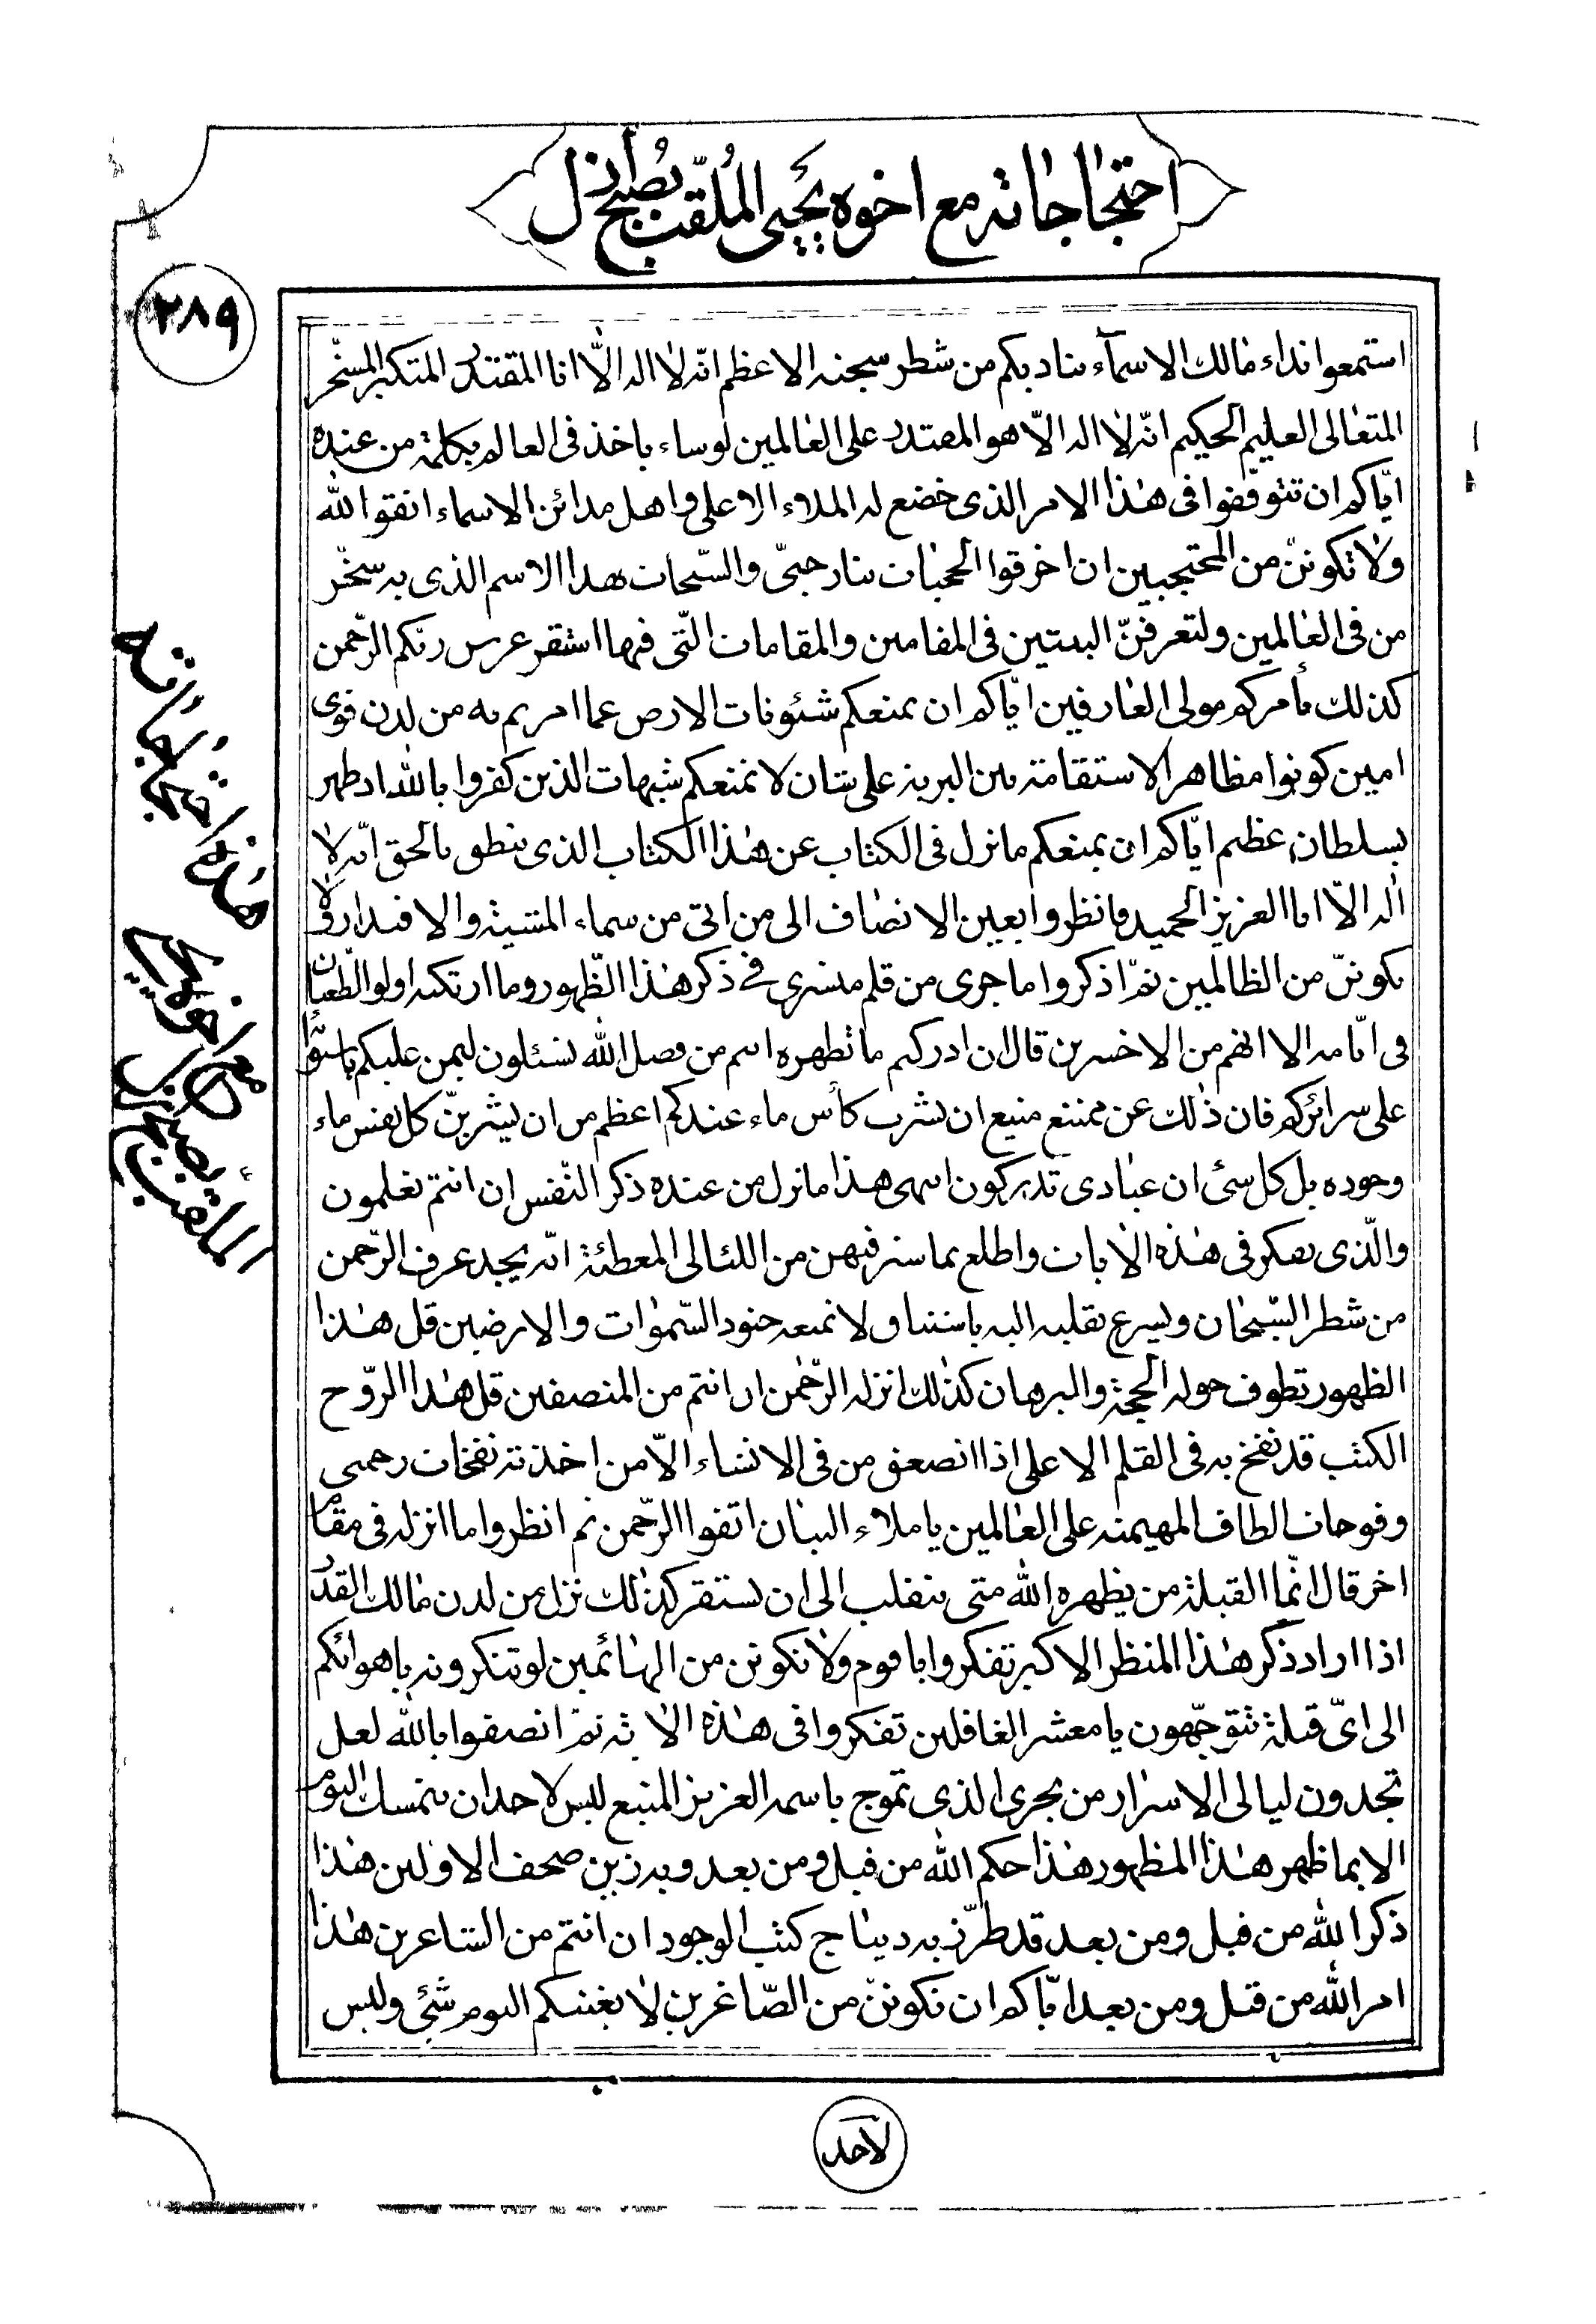 احتجاجاته مع اخوه يحيى الملقب بصبح ازل
٢٨٩
استمعوا نداء مالك الاسمآء يناديكم من شطر سجنه الاعظم انّه لا اله الّا انا المقتدر المتكبر المسخّر
المتعالى العليم الحكيم انّه لا اله الّا هو المقتدر على العالمين لو يشاء ياخذ فى العالم بكلمة من عنده
ايّاكم ان تتوقّفوا فى هذا الامر الذى خضع له الملاء الاعلى و اهل مدائن الاسماء اتقوا الله
ولا تكوننّ من المحتجبين ان اخرقوا الحجبات بنار حبّى والسّبحات بهذا الاسم الذى به سخّر
من فى العالمين ولتعرفنّ البيتين فى المقامين والمقامات الّتى فيها استقر عرس ربّكم الرّحمن
كذلك يأمركم مولى العارفين ايّاكم ان يمنعكم شئونات الارض عما امرتم به من لدن قوى
امين كونوا مظاهر الاستقامة بين البرية على شان لا تمنعكم شبهات الذين كفروا بالله اذ ظهر
بسلطان عظيم ايّاكم ان يمنعكم مانزل فى الكتاب عن هذا الكتاب الذى ينطق بالحق انّه لا
اله الّا انا العزيز الحميد فانظروا بعين الانصاف الى من اتى من سماء المشية والاقتدار ولا
تكوننّ من الظالمين ثمّ اذكروا ما جرى من قلم مبشرى فى ذكر هذا الظّهور وما ارتكبه اولوا الطّغيان
فى ايّامه الا انهم من الاخسرين قال ان ادركتم ما نظهره انتم من فضل الله تسئلون ليمن عليكم باستوائه
على سرائركم فان ذلك عن ممتنع منيع ان يشرب كأس ماء عندكم اعظم من ان يشربنّ كل نفس ماء
وجوده بل كل شئ ان عبادى تدركون انتهى هذا مانزل من عنده ذكر النّفس ان انتم تعلمون
والّذى يفكر فى هذه الايات واطلع بما ستر فيهن من اللئالى المعطئة انّه يجد عرف الرّحمن
من شطر السّبحان ويسرع بقلبه اليه باشتياق ولا تمنعه جنود السّموات والارضين قل هذا
الظهور تطوف حوله الحجّة والبرهان كذلك انزله الرّحمن ان انتم من المنصفين قل هذا الرّوح
الكتب قد نفخ به فى القلم الاعلى اذا انصعق من فى الانشاء الّا من اخذته نفخات رحمتى
وفوحات الطاف المهيمنة على العالمين يا ملاء البيان اتقوا الرّحمن ثم انظروا ما انزله فى مقام
اخر قال انّما القبلة من يظهره الله متى ينقلب الى ان يستقر كذلك نزل من لدن مالك القدر
اذا اراد ذكر هذا المنظر الاكبر تفكروا يا قوم ولا تكونن من الهائمين لو تنكرونه باهوائكم
الى اىّ قبلة تتوجّهون يا معشر الغافلين تفكروا فى هذه الاية ثمّ انصفوا بالله لعل
تجدون ليالى الاسرار من بحرى الذى تموج باسمه العزيز المنيع ليس لاحد ان يتمسك اليوم
الا بما ظهر هذا الظهور هذا حكم الله من قبل ومن بعد وبه زين صحف الاولين هذا
ذكر الله من قبل ومن بعد قد طرّز به ديباج كتب الوجود ان انتم من الشاعرين هذا
امر الله من قبل ومن بعد ايّاكم ان تكوننّ من الصّاغرين لا يغنيكم اليوم شئ وليس
لاحد
هذه احتجاجاته
مع اخوه يحيى
الملقب بصبح ازل